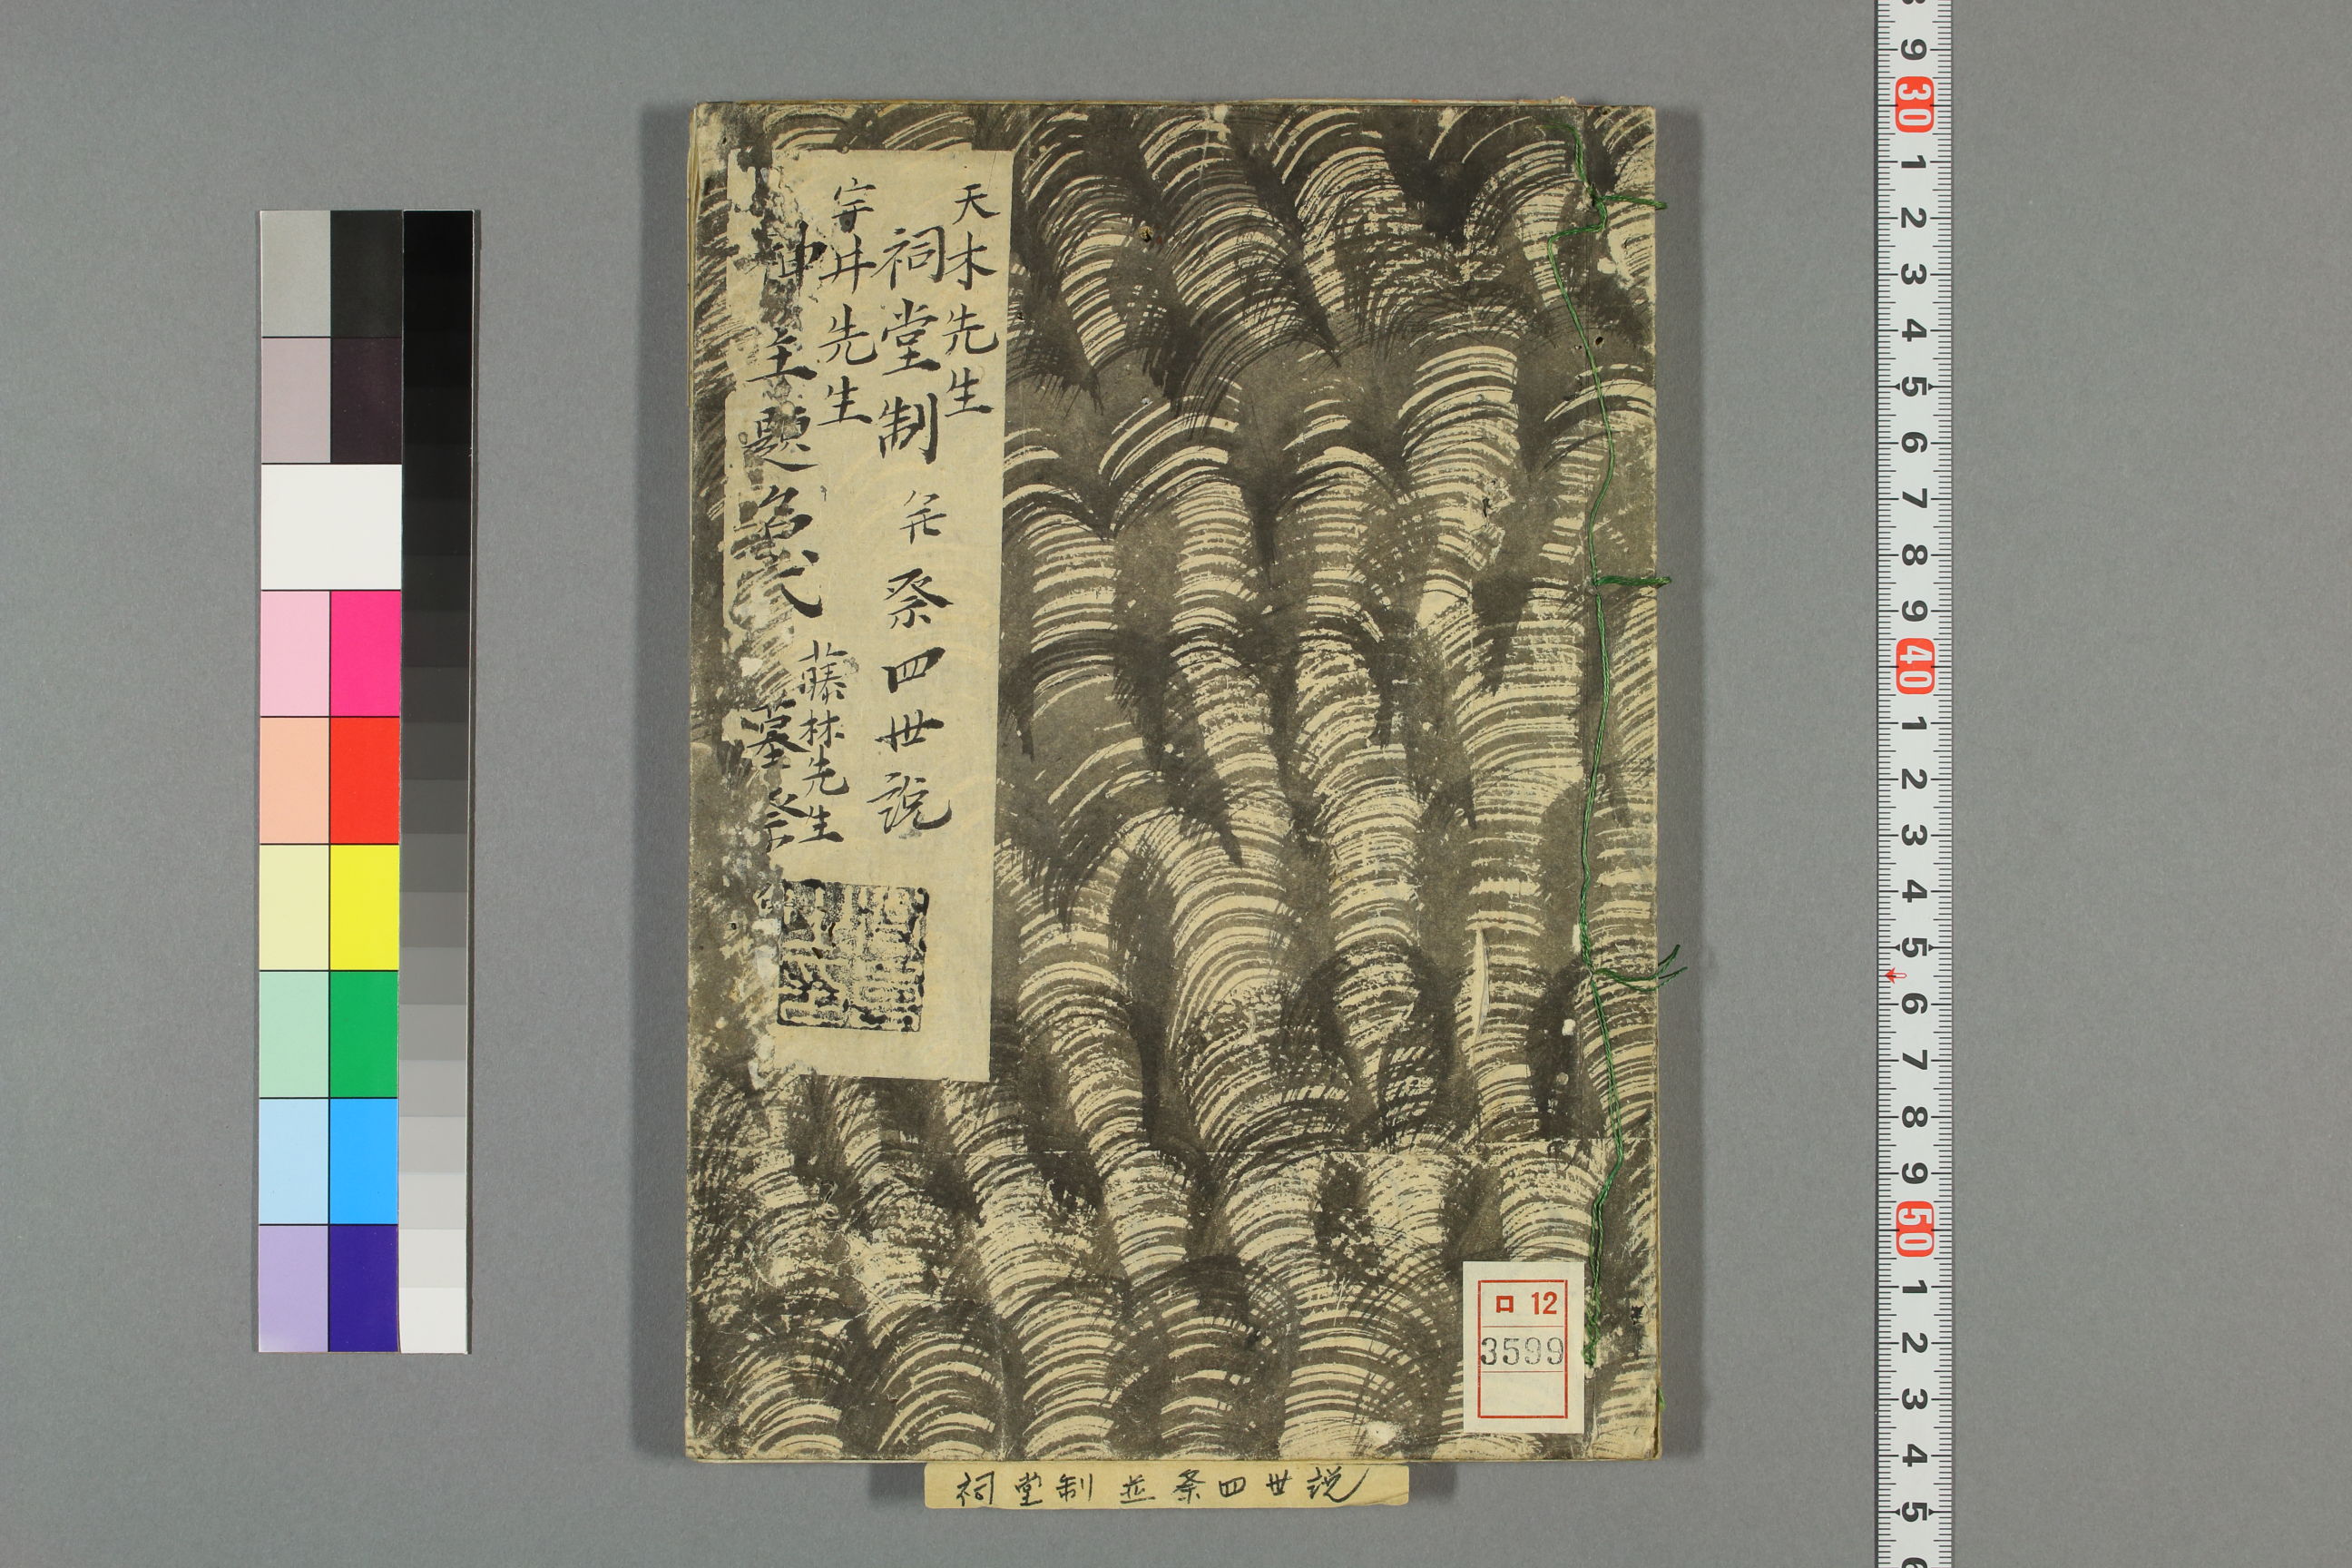 天木先生
祠堂制 并 祭四世説
宇井先生
神主題名式
藤林先生
墓祭
ロ 12
3599
祠堂制並祭四世説
9 30 1 2 3 4 5 6 7 8 9 40 1 2 3 4 5 6 7 8 9 50 1 2 3 4 5 6